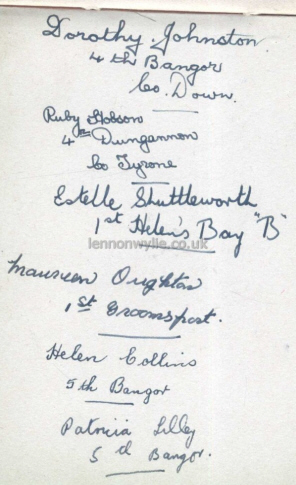 Dorothy Johnston
4th Bangor
Co. Down.
Ruby Hobson
4th Dungannon
Co Tyrone
Estelle Shuttleworth
1st Helen's Bay "B"
lennonwylie.co.uk
Maureen Oughton
1st Groomsport.
Helen Collins
5th Bangor
Patricia Lilley
5th Bangor.